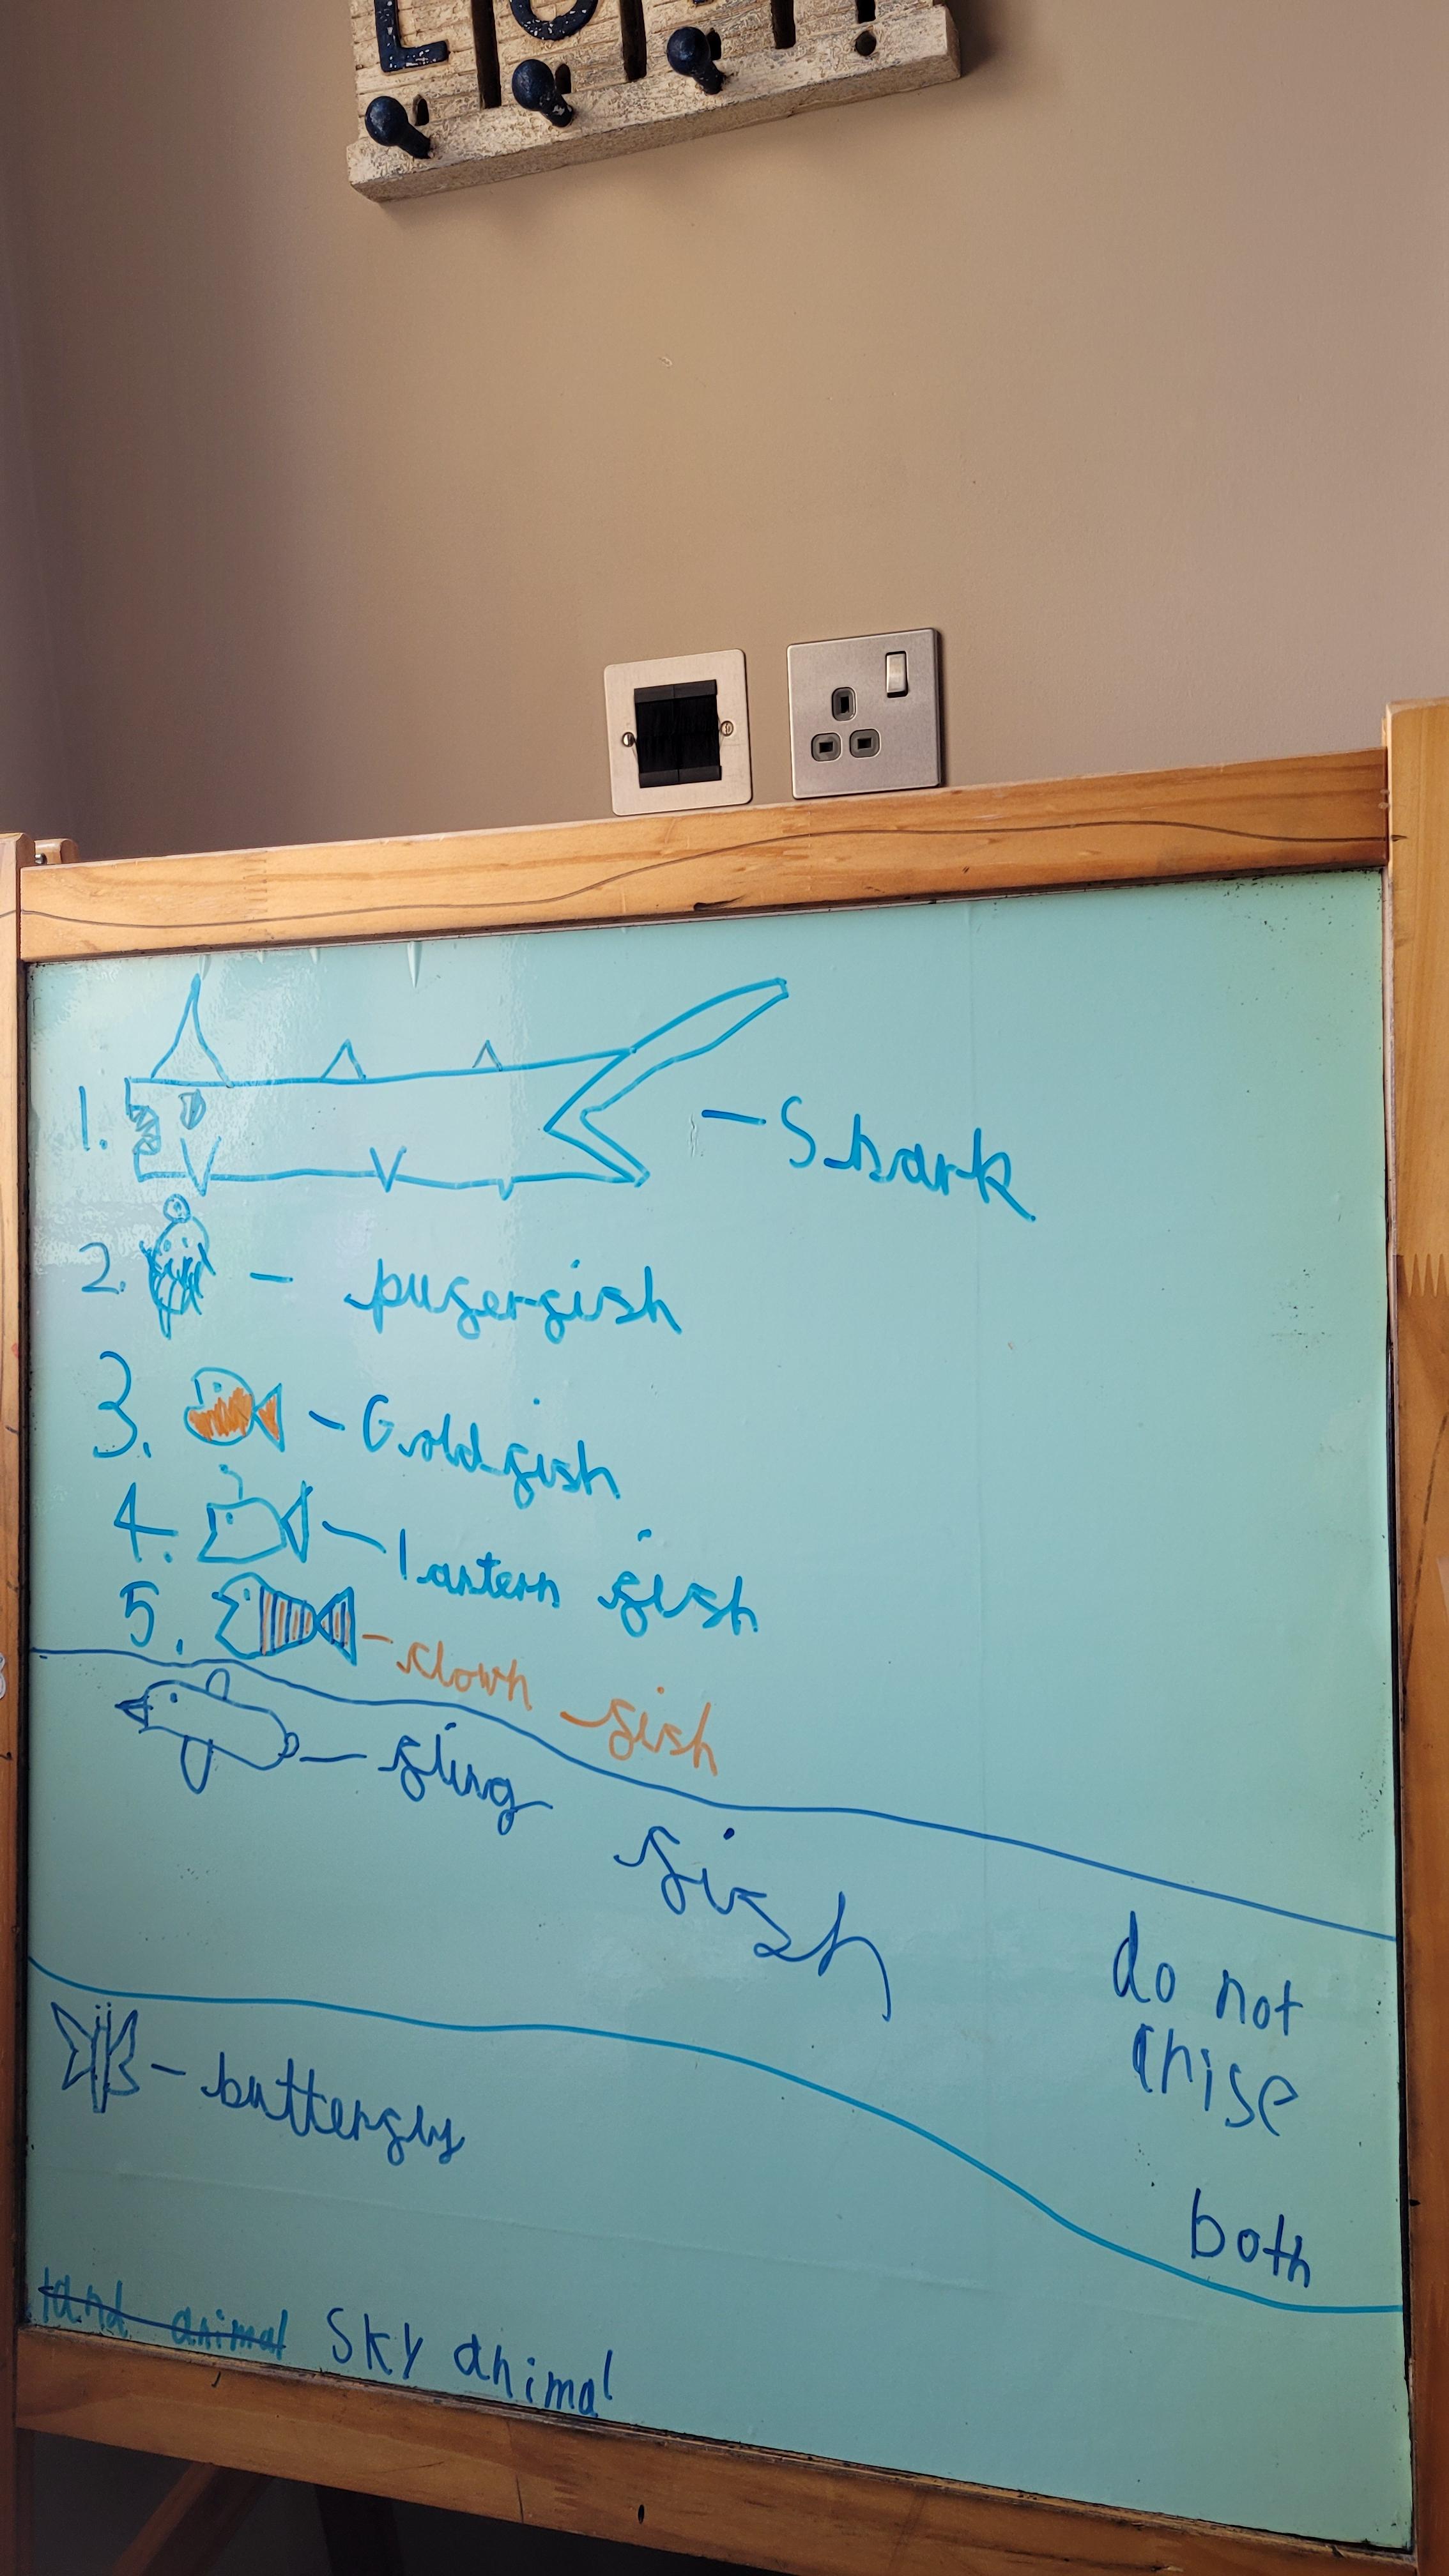 1. - Shark
2. - puferfish
3. - Goldfish
4. - lantern fish
5. - clown fish
- fling fish
do not
- butterfly
both
land animal Sky animal